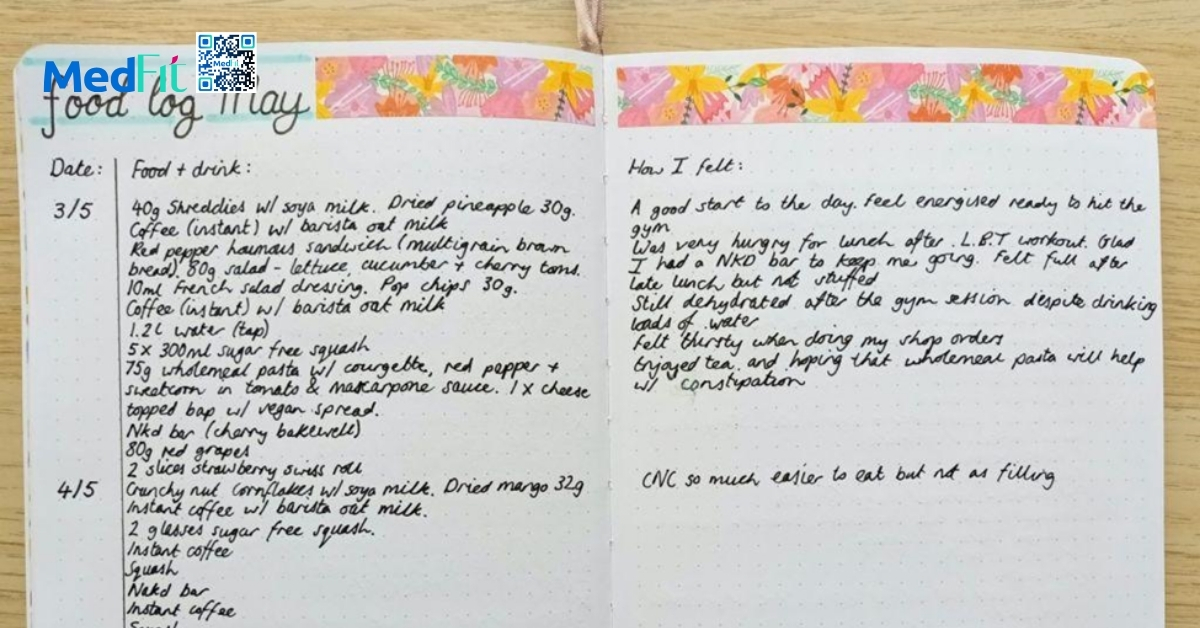 MedFit
MedFit
food log May
Date:
Food + drink:
3/5
40g Shreddies w/ soya milk. Dried pineapple 30g.
Coffee (instant) w/ barista oat milk
Red pepper houmous sandwich (multigrain brown
bread). 80g salad - lettuce, cucumber + cherry toms.
10ml French salad dressing. Pop chips 30g.
Coffee (instant) w/ barista oat milk
1.2L water (tap)
5 x 300ml sugar free squash
75g wholemeal pasta w/ courgette, red pepper +
sweetcorn in tomato & mascarpone sauce. 1 x cheese
topped bap w/ vegan spread.
Nkd bar (cherry bakewell)
80g red grapes
2 slices strawberry swiss roll
4/5
Crunchy nut cornflakes w/ soya milk. Dried mango 32g
Instant coffee w/ barista oat milk.
2 glasses sugar free squash.
Instant coffee
Squash
Nakd bar
Instant coffee
Squash
How I felt:
A good start to the day. Feel energised ready to hit the
gym
Was very hungry for lunch after L.B.T workout. Glad
I had a NKD bar to keep me going. Felt full after
late lunch but not stuffed
Still dehydrated after the gym session despite drinking
loads of water
Felt thirsty when doing my shop orders
Enjoyed tea and hoping that wholemeal pasta will help
w/ constipation
CNC so much easier to eat but not as filling